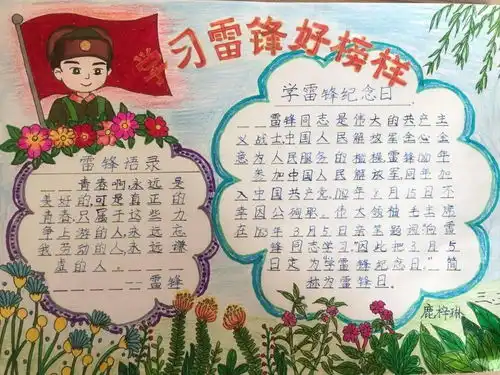 学习雷锋好榜样
学雷锋纪念日
雷锋同志是伟大的共产主
义战士,中国人民解放军全心全
意为人民服务的楷模,雷锋
参加中国人民解放军,同年加
入中国共产党。8月15日不
幸因公殉职。伟大领袖毛主席
在63年3月5日亲笔题词"向雷
锋同志学习"。因此把3月5
日定为"学雷锋纪念日。"简
称为雷锋日。
雷锋语录
青春啊,永远是
美好的,可是真正的
青春,只属于这些力
争上游的人,永远忘
我劳动的人,永远谦
虚的人。
——雷锋
鹿梓琳